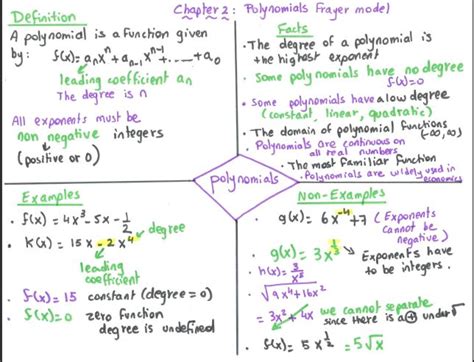 Chapter 2: Polynomials Frayer model
Definition
A polynomial is a function given
by: f(x) = aₙxⁿ + aₙ₋₁xⁿ⁻¹ + ...... + a₀
leading coefficient aₙ
The degree is n
All exponents must be
non negative integers
(positive or 0)
Facts
• The degree of a polynomial is
the highest exponent
• Some polynomials have no degree
f(x)=0
• Some polynomials have a low degree
(constant, linear, quadratic)
• The domain of polynomial functions
(-∞,∞)
• Polynomials are continuous on
all real numbers
• The most familiar function
• Polynomials are widely used in
economics
polynomials
Examples
• f(x) = 4x³ - 5x - 1/2
• K(x) = 15x - 2x⁴
degree
leading
coefficient
• f(x) = 15 constant (degree = 0)
• f(x) = 0 zero function
degree is undefined
Non-Examples
• g(x) = 6x⁻⁴ + 7 (Exponents
cannot be
negative)
• g(x) = 3x^(1/3)
Exponents have
to be integers.
• h(x) = 3/x⁵
• √(9x⁴ + 16x²)
= 3x² + 4x we cannot separate
since there is a + under √
• f(x) = 5x^(1/2) = 5√x